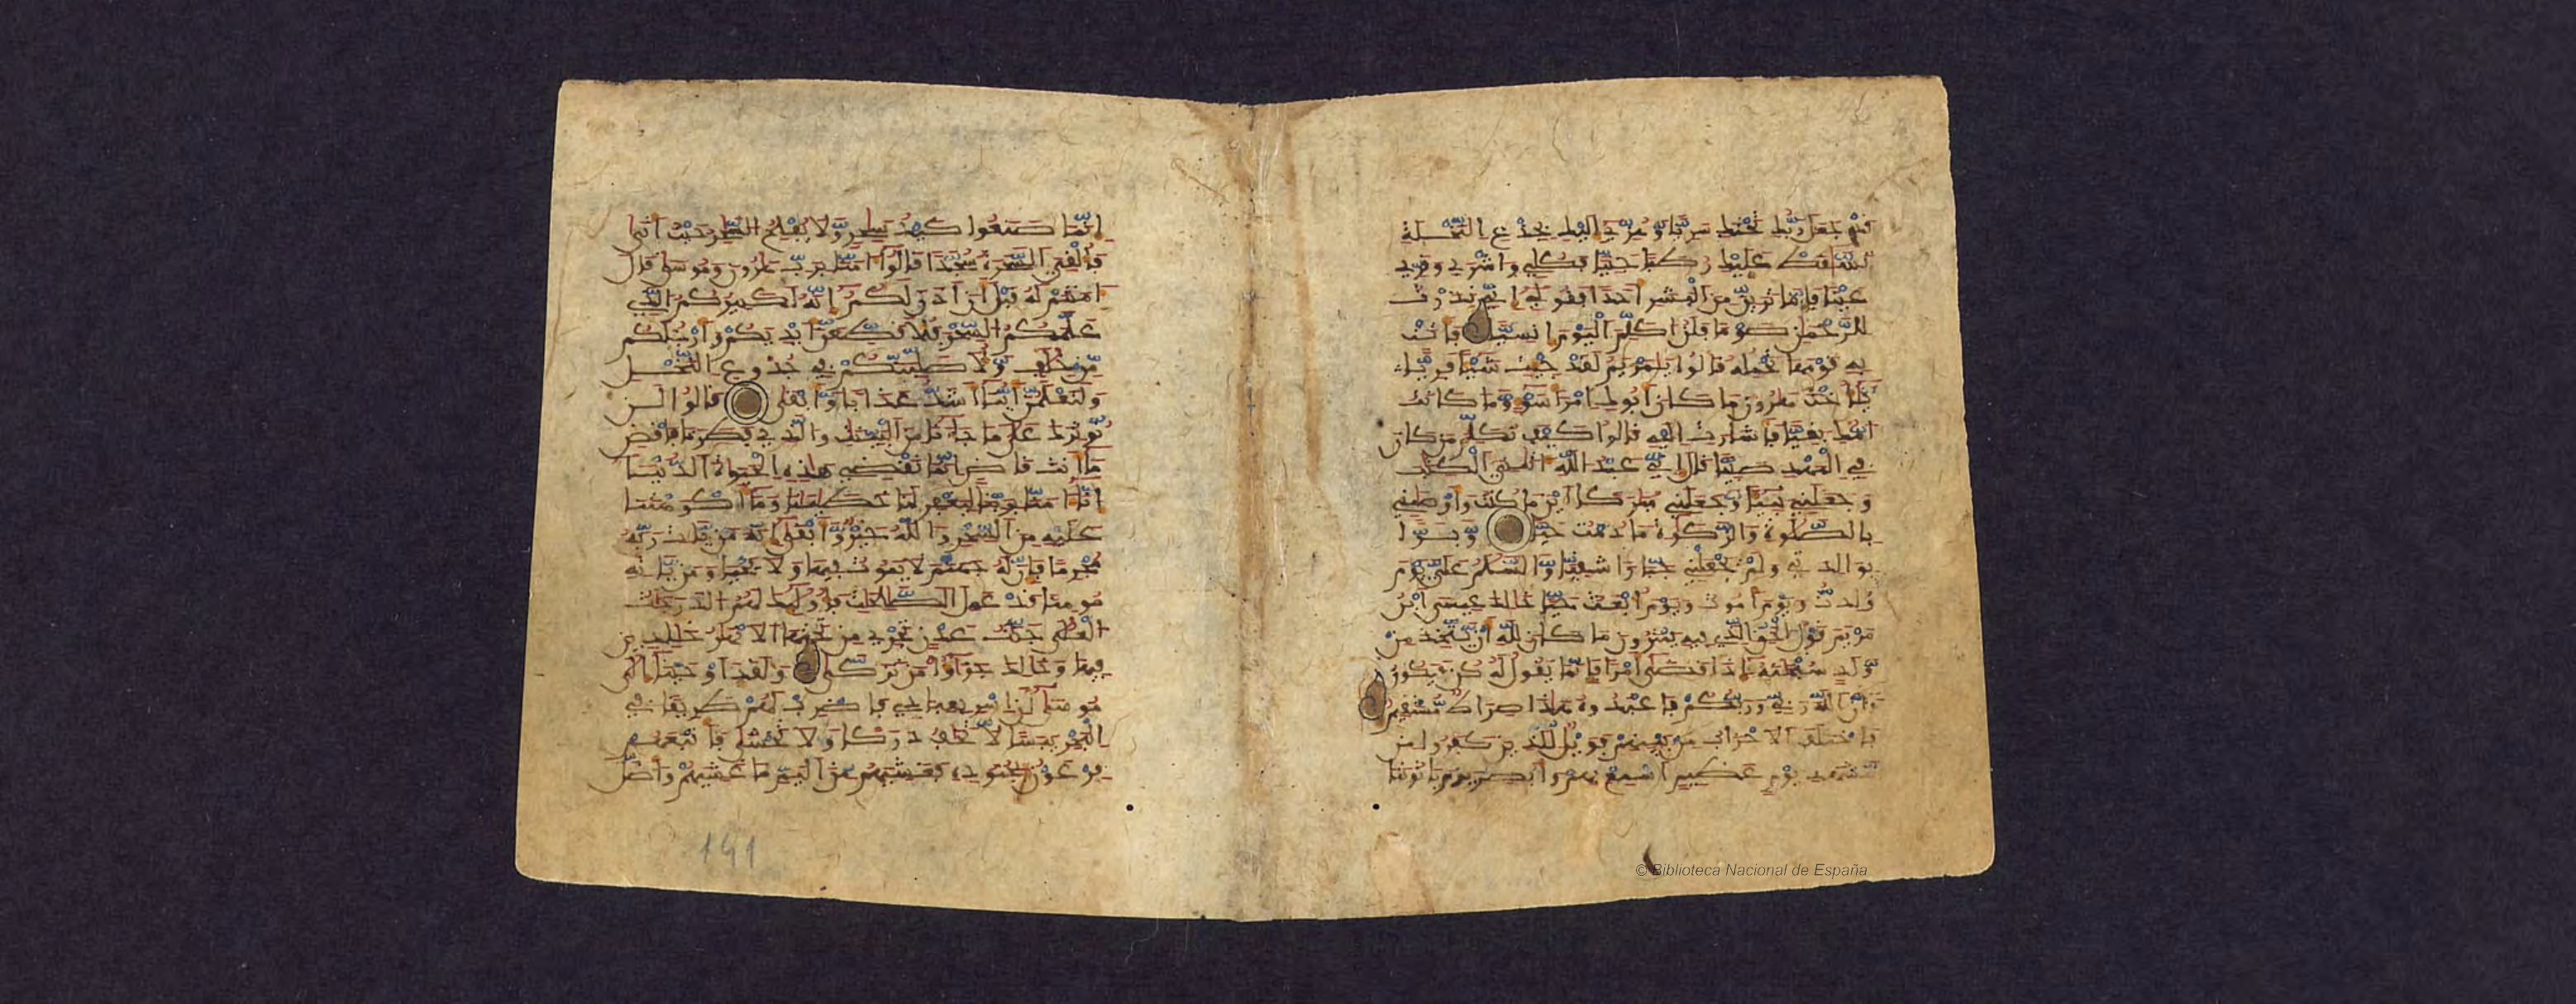 قد جعل ربك تحتك سريا وهزي اليك بجذع النخلة
تسقط عليك رطبا جنيا فكلي واشربي وقري
عينا فإما ترين من البشر أحدا فقولي إني نذرت
للرحمن صوما فلن أكلم اليوم إنسيا فأتت
به قومها تحمله قالوا يمريم لقد جئت شيئا فريا
يأخت هرون ما كان أبوك امرأ سوء وما كانت
أمك بغيا فأشارت إليه قالوا كيف نكلم من كان
في المهد صبيا قال إني عبد الله اتني الكتب
وجعلني نبيا وجعلني مبركا أين ما كنت وأوصني
بالصلوة والزكوة ما دمت حيا وبرا
بوالدتي ولم يجعلني جبارا شقيا والسلم علي يوم
ولدت ويوم أموت ويوم أبعث حيا ذلك عيسى ابن
مريم قول الحق الذي فيه يمترون ما كان لله أن يتخذ من
ولد سبحنه إذا قضى أمرا فإنما يقول له كن فيكون
وأن الله ربي وربكم فاعبدوه هذا صراط مستقيم
فاختلف الاحزاب من بينهم فويل للذين كفروا من
مشهد يوم عظيم أسمع بهم وأبصر يوم يأتوننا
إنما صنعوا كيد سحر ولا يفلح الساحر حيث أتى
فألقي السحرة سجدا قالوا امنا برب هرون وموسى قال
امنتم له قبل أن اذن لكم إنه لكبيركم الذي
علمكم السحر فلأقطعن أيديكم وأرجلكم
من خلف ولأصلبنكم في جذوع النخل
ولتعلمن أينا أشد عذابا وأبقى قالوا لن
نؤثرك على ما جاءنا من البينت والذي فطرنا فاقض
ما أنت قاض إنما تقضي هذه الحيوة الدنيا
إنا امنا بربنا ليغفر لنا خطينا وما أكرهتنا
عليه من السحر والله خير وأبقى إنه من يأت ربه
مجرما فإن له جهنم لا يموت فيها ولا يحيى ومن يأته
مومنا قد عمل الصلحت فأولئك لهم الدرجت
العلى جنت عدن تجري من تحتها الانهر خلدين
فيها وذلك جزاؤا من تزكى ولقد أوحينا إلى
موسى أن اسر بعبادي فاضرب لهم طريقا في
البحر يبسا لا تخف دركا ولا تخشى فأتبعهم
فرعون بجنوده فغشيهم من اليم ما غشيهم وأضل
191
© Biblioteca Nacional de España